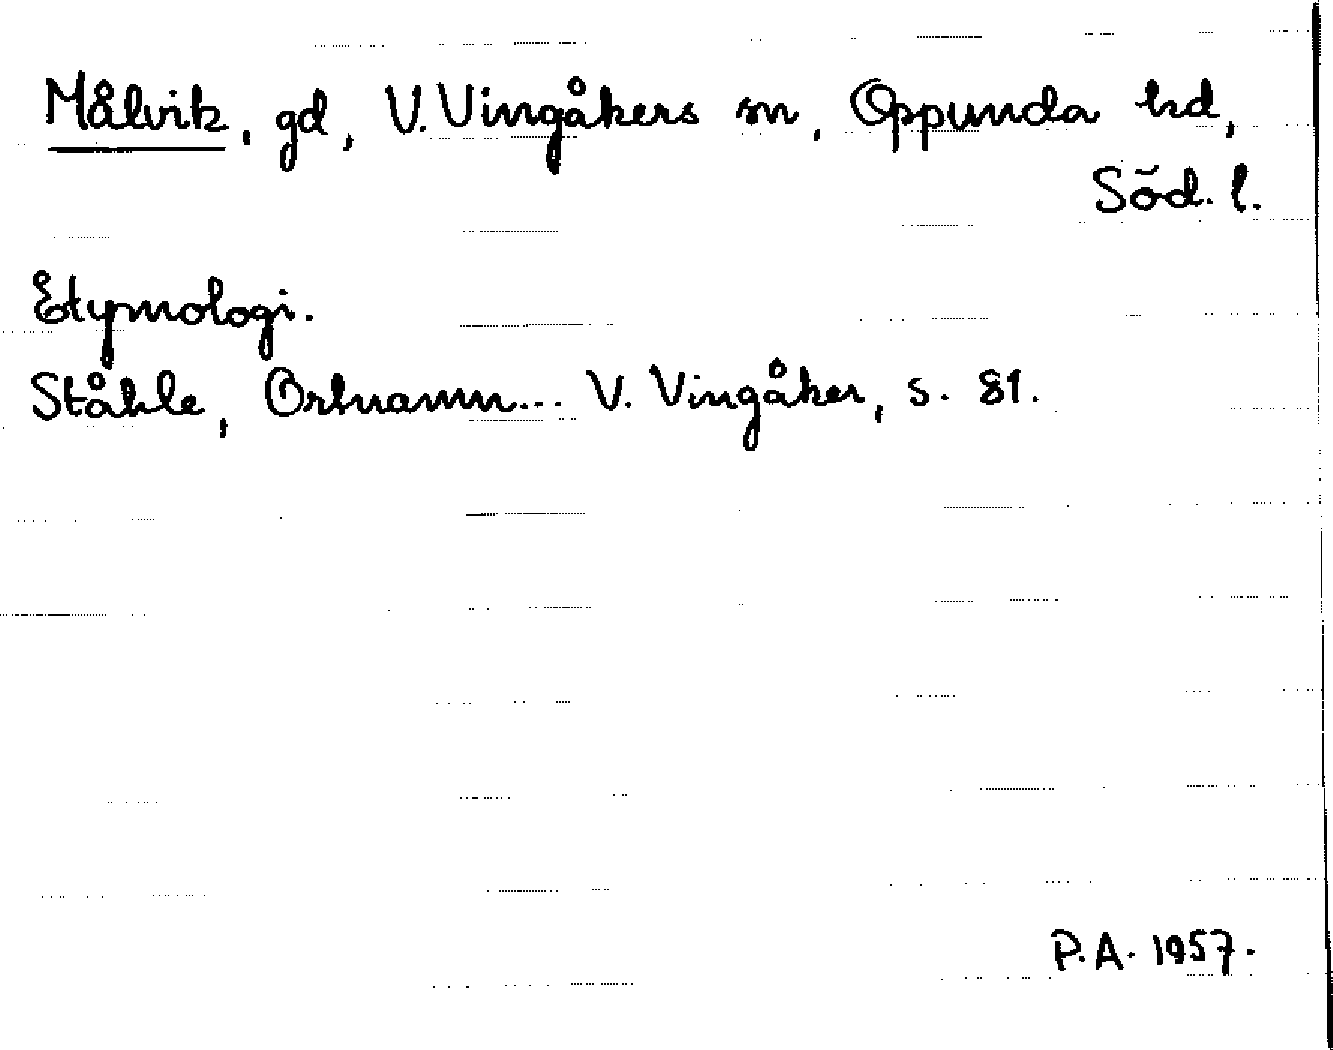 Målvik, gd, V. Vingåkers sn, Oppunda hd,
Söd. l.
Etymologi.
Ståhle, Ortnamn... V. Vingåker, s. 81.
P.A. 1957.